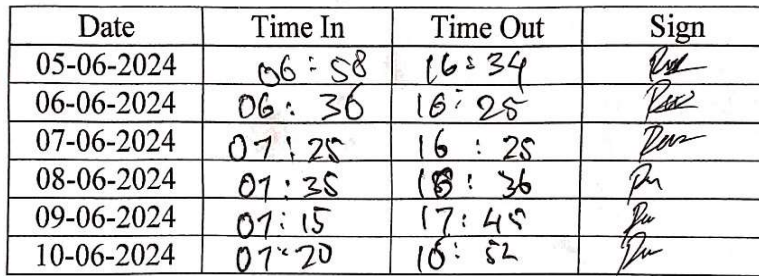 Date Time In Time Out Sign
05-06-2024 06:58 16:34
06-06-2024 06:36 16:25
07-06-2024 07:25 16:25
08-06-2024 07:35 36
09-06-2024 07:15 17:45
10-06-2024 07:20 16:52